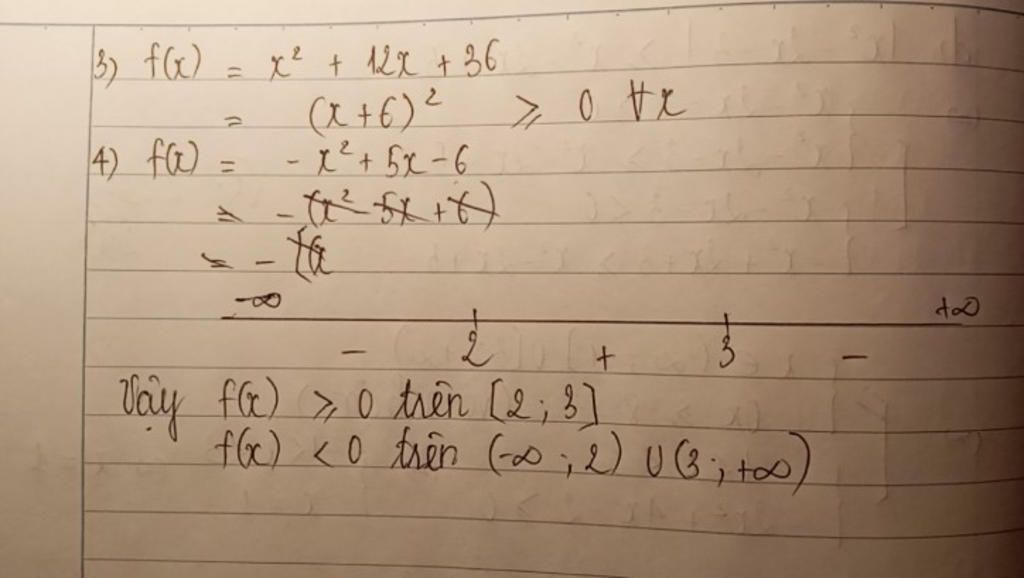 3) f(x) = x² + 12x + 36
= (x+6)² ⩾ 0 ∀x
4) f(x) = - x² + 5x - 6
= - (x² - 5x + 6)
= - [(x
-∞ +∞
- 2 + 3 -
Vậy f(x) ⩾ 0 trên [2 ; 3]
f(x) < 0 trên (-∞ ; 2) ∪ (3 ; +∞)